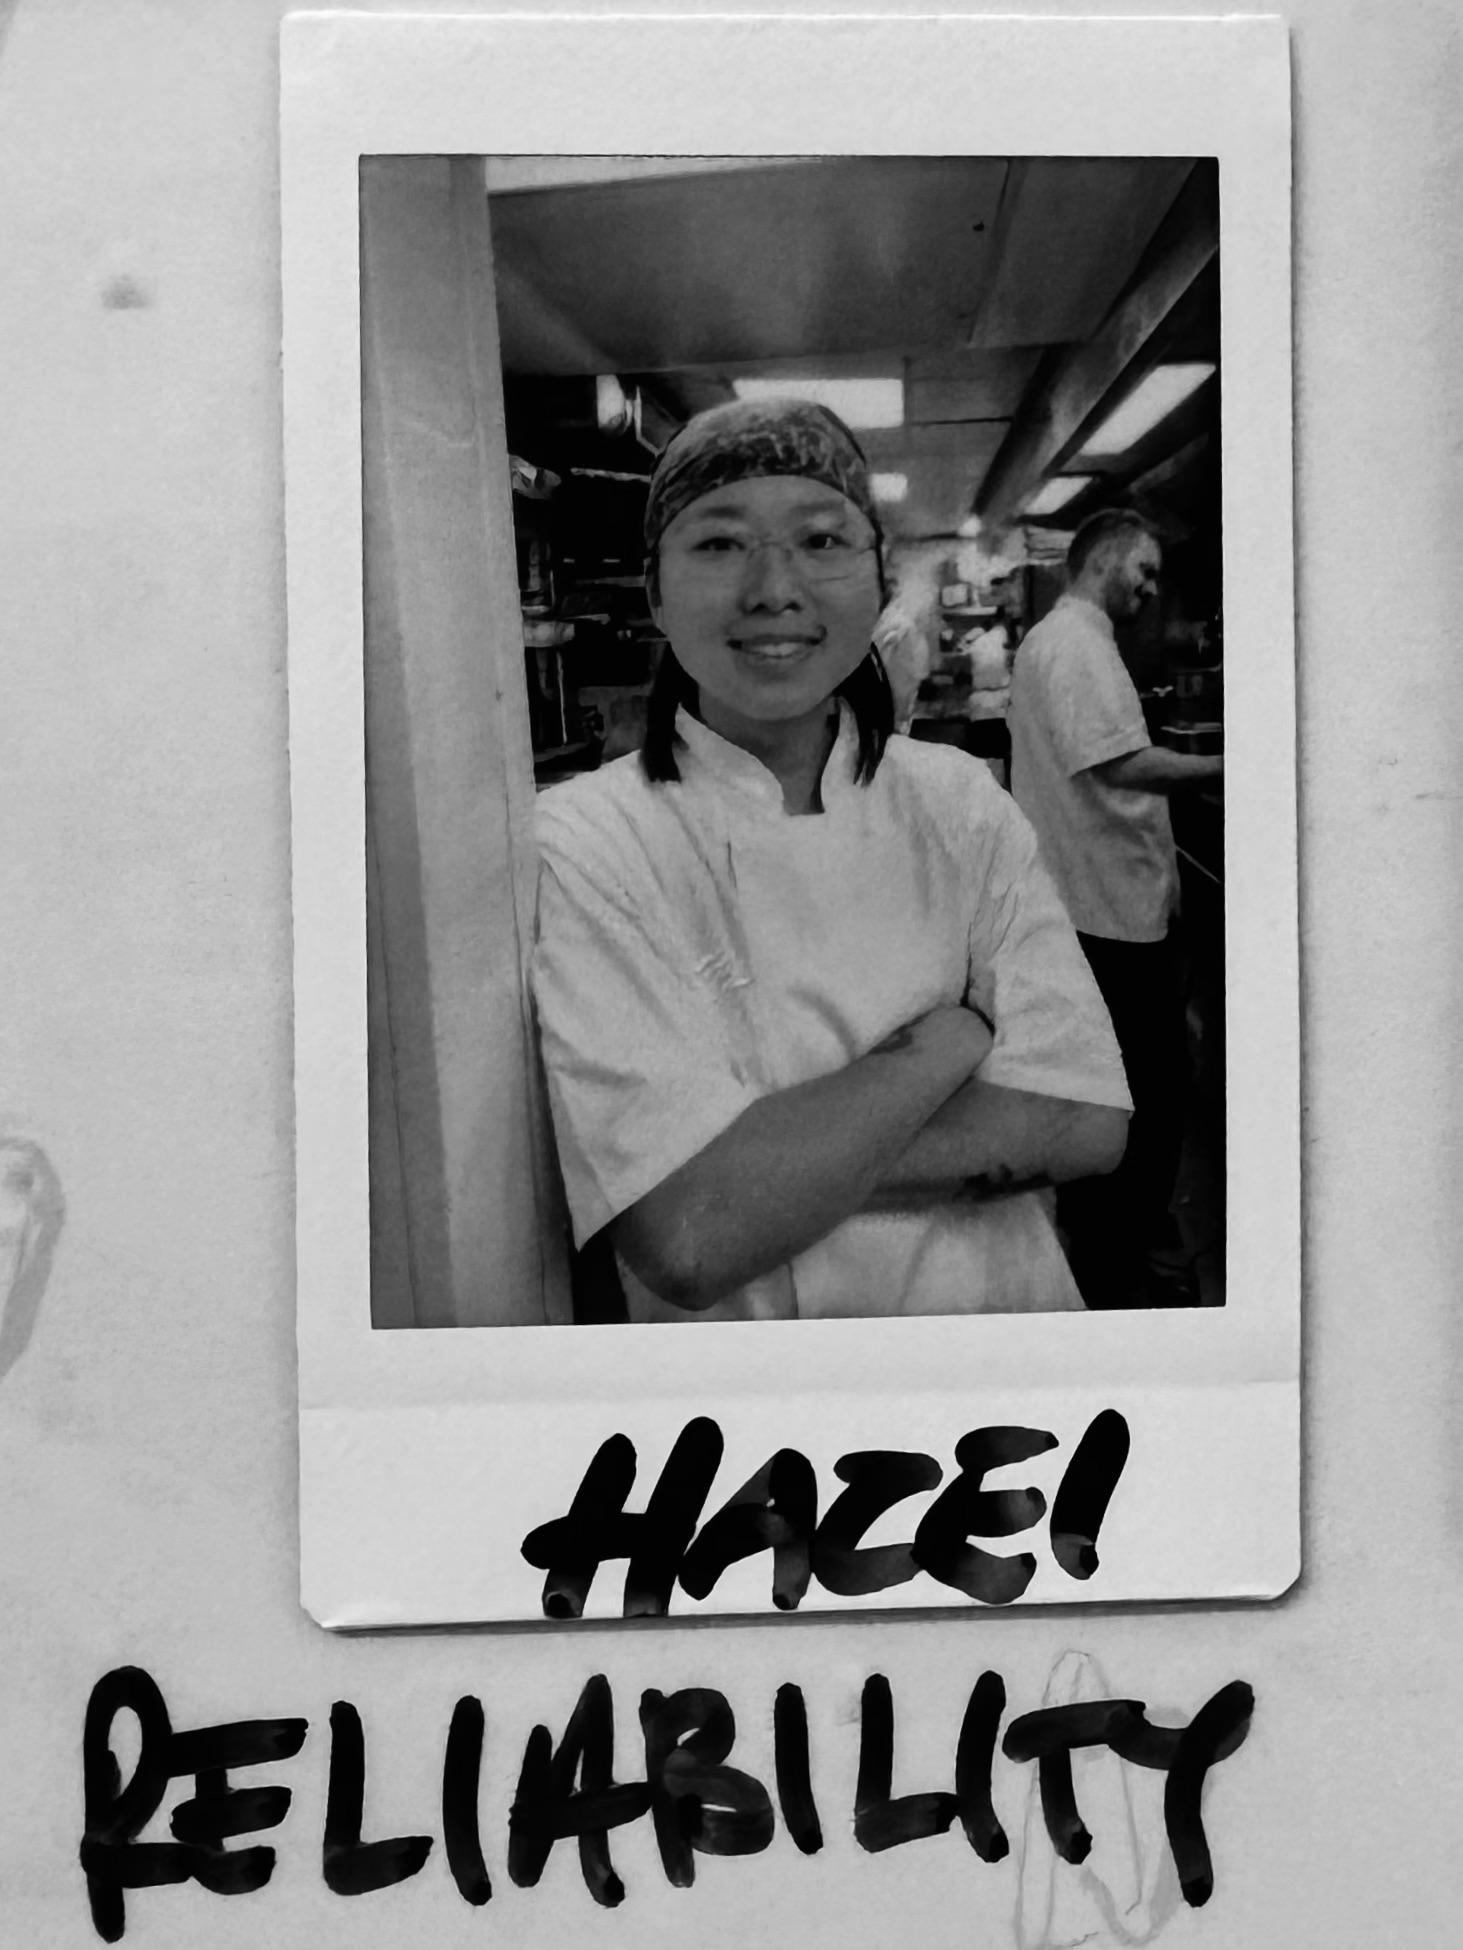 HAZEl
RELIABILITY